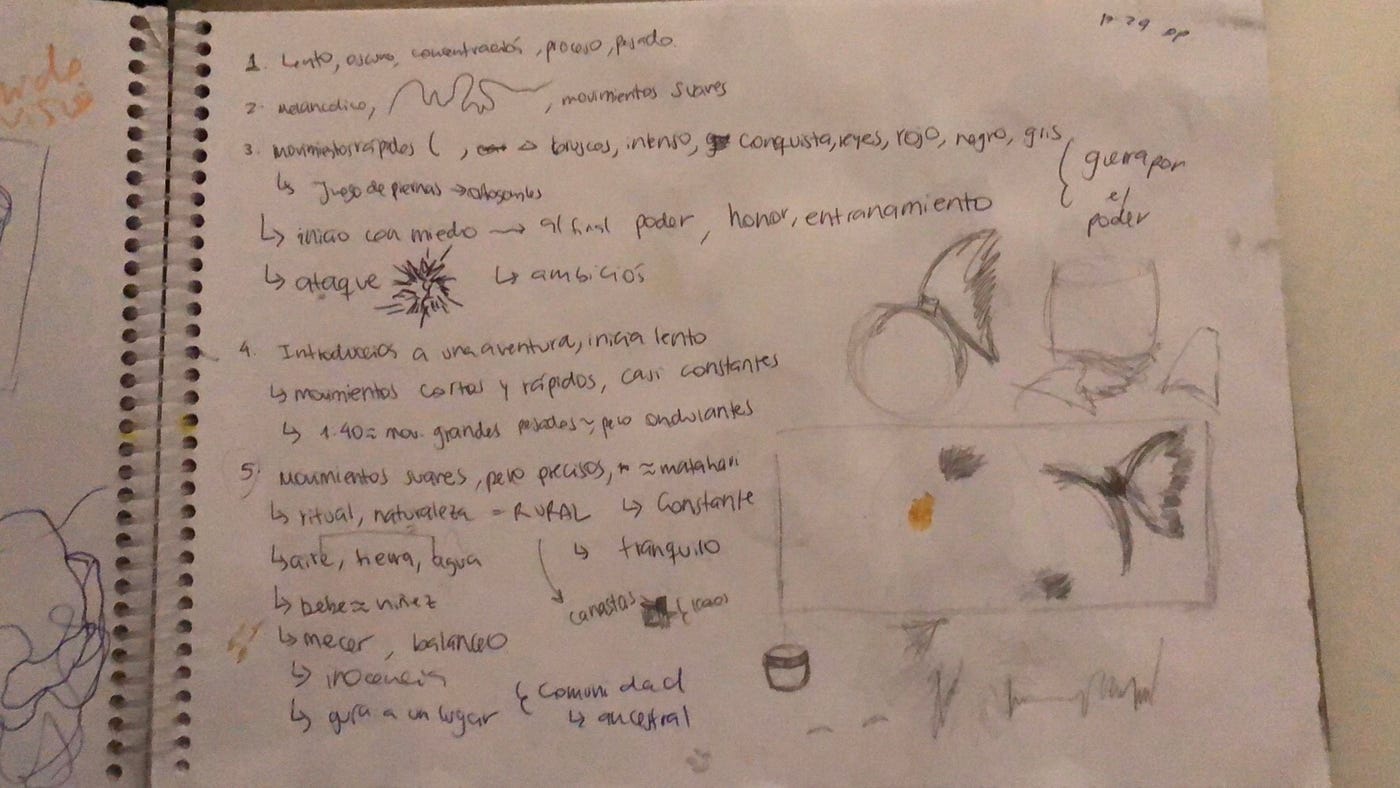 1. Lento, oscuro, concentración, proceso, pesado.
2. melancólico, , movimientos suaves
3. movimientos rápidos ( , bruscos, intenso, conquista, reyes, rojo, negro, gris
guerra por
el
poder
↳ Juego de piernas →
↳ inicio con miedo → al final poder, honor, entranamiento
↳ ataque ↳ ambiciós
4. Introducciós a una aventura, inicia lento
↳ movimientos cortos y rápidos, casi constantes
↳ 1.40 ≈ mov. grandes pesados ~ pero ondulantes
5. Movimientos suaves, pero precisos, ≈ matahari
↳ ritual, naturaleza = RURAL ↳ Constante
↳ aire, tierra, agua ↳ tranquilo
↳ bebe ≈ niñez canastas
↳ mecer, balanceo
↳ inocencia
↳ guía a un lugar { Comunidad
↳ ancestral